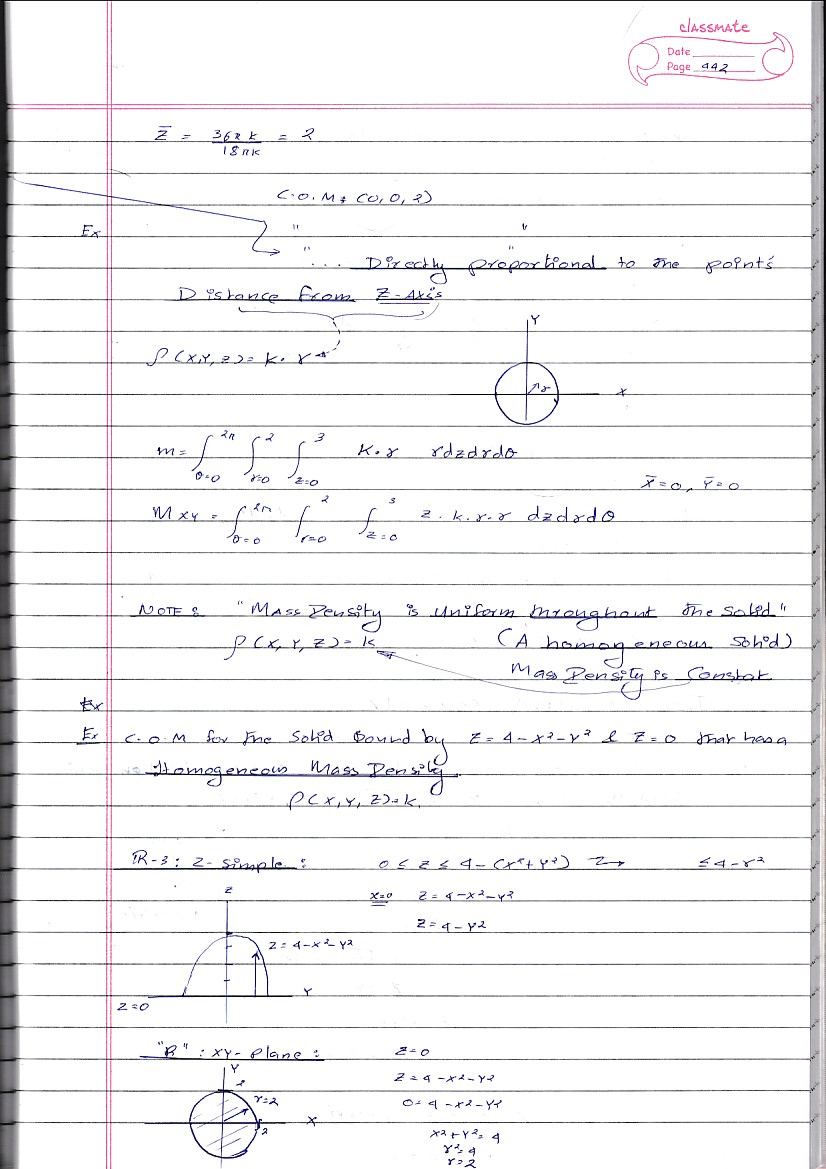 classmate
Date
Page 442
Z̄ = 36πk / 18πk = 2
C.O.M : (0, 0, 2)
Ex " "
" ... " Directly proportional to the point's
Distance from Z-Axis
ρ(X,Y,Z) = k·r
Y
r
X
m = ∫θ=0^2π ∫r=0^2 ∫z=0^3 K·r rdzdrdθ
X̄=0, Ȳ=0
Mxy = ∫θ=0^2π ∫r=0^2 ∫z=0^3 z·k·r·r dzdrdθ
NOTE: "Mass Density is Uniform throughout the Solid"
ρ(X, Y, Z) = k (A homogeneous Solid)
Mass Density is Constat
Ex
Ex C.O.M for the Solid Bound by Z = 4-X²-Y² & Z=0 that has a
Homogeneous Mass Density.
ρ(X, Y, Z) = k.
R-3: Z-simple: 0 ≤ z ≤ 4-(X²+Y²) → ≤ 4-r²
Z
x=0 Z = 4-X²-Y²
Z = 4-Y²
Z = 4-X²-Y²
Y
Z=0
"R": XY-Plane: Z=0
Y
2
Z = 4-X²-Y²
r=2
0 = 4-X²-Y²
X
2
X²+Y²=4
r²=4
r=2